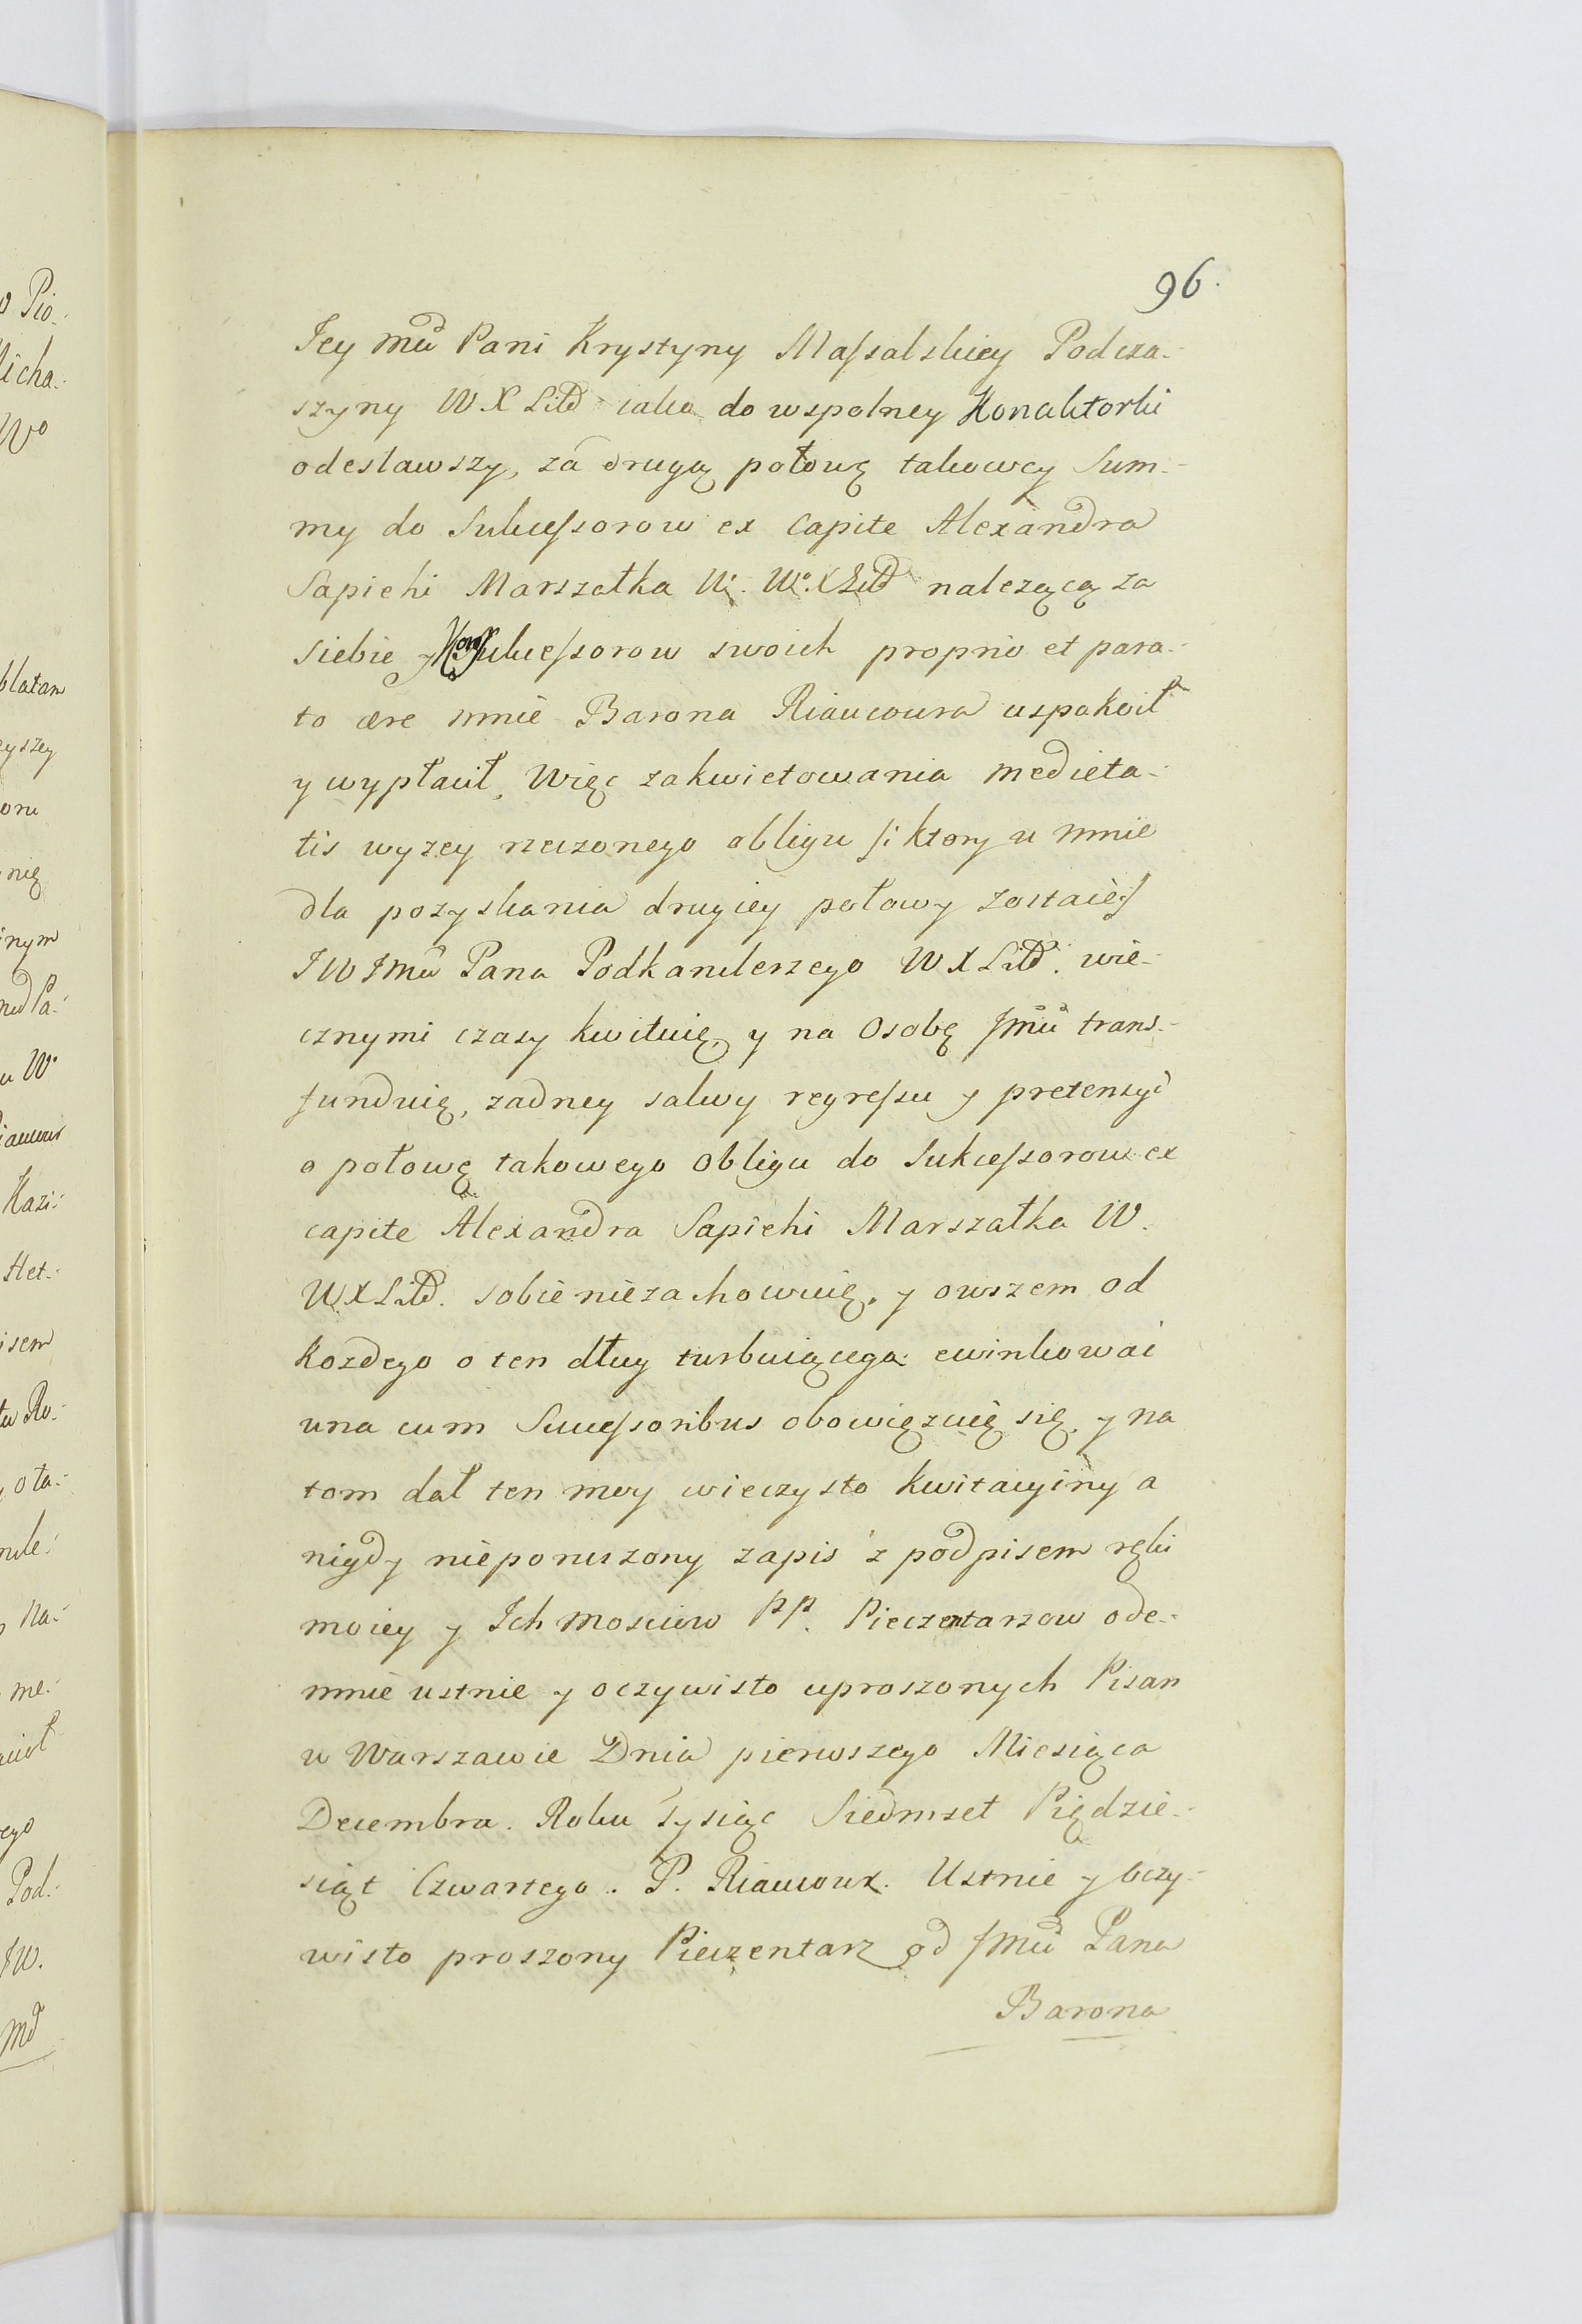 96.
Jey Mći Pani Krystyny Massalskiey Podcza-
szyny W X Litt iako do wspolney Konaktorki
odesławszy, za drugą połowę takowey Sum-
my do Sukcessorow ex capite Alexandra
Sapiehi Marszałka W. W. X Litt nalezącą za
siebie y Kon Sukcessorow swoich proprio et para-
to ære mnie Barona Riaucoura uspokoił
y wypłacił, Więc zakwietowania medieta-
tis wyzey rzeczonego obligu /: ktory u mnie
dla pozyskania drugiey połowy zostaie :/
J W Jmći Pana Podkanclerzego W X Litt. wie-
cznymi czasy kwituię, y na Osobę Jmći trans-
funduię, zadney salwy regressu y pretensyi
o połowę takowego Obligu do Sukcessorow ex
capite Alexandra Sapiehi Marszałka W.
W X Litt. sobie niezachowuię, y owszem od
kozdego o ten dług turbuiącego ewinkować
una cum Successoribus obowięzuię się, y na
tom dał ten moy wieczysto kwitacyiny a
nigdy nieporuszony zapis z podpisem ręki
moiey y Ich Mosciow PP. Pieczentarzow ode-
mnie ustnie y oczywisto uproszonych Pisan
w Warszawie Dnia pierwszego Miesiąca
Decembra. Roku Tysiąc Siedmset Pięddzie-
siąt Czwartego. P. Riaucour. Ustnie y Oczy-
wisto proszony Pieczentarz od Jmći Pana
Barona
o Pio-
Micha-
Wo
blatam
eyszey
nię
inym
u W.
Kazi-
Het-
isem
o ta-
na-
me-
ego
Pod-
JW.